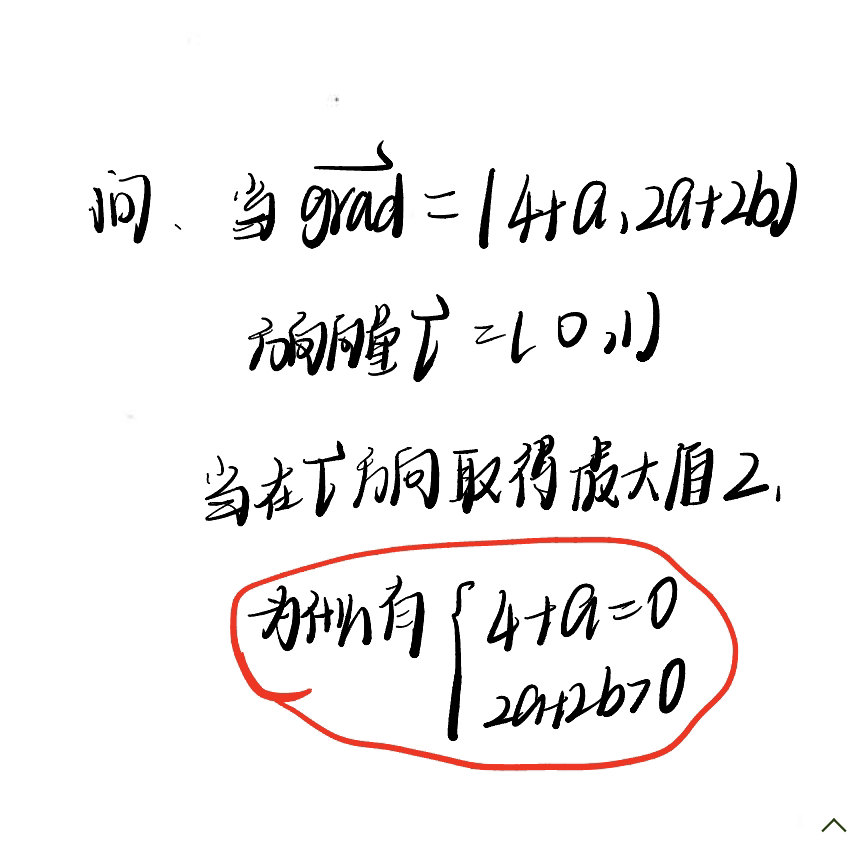 问、当 grad⃗ = (4+a, 2a+2b)
方向向量 l⃗ = (0,1)
当在 l⃗ 方向取得最大值2,
为什么有 { 4+a=0
2a+2b>0